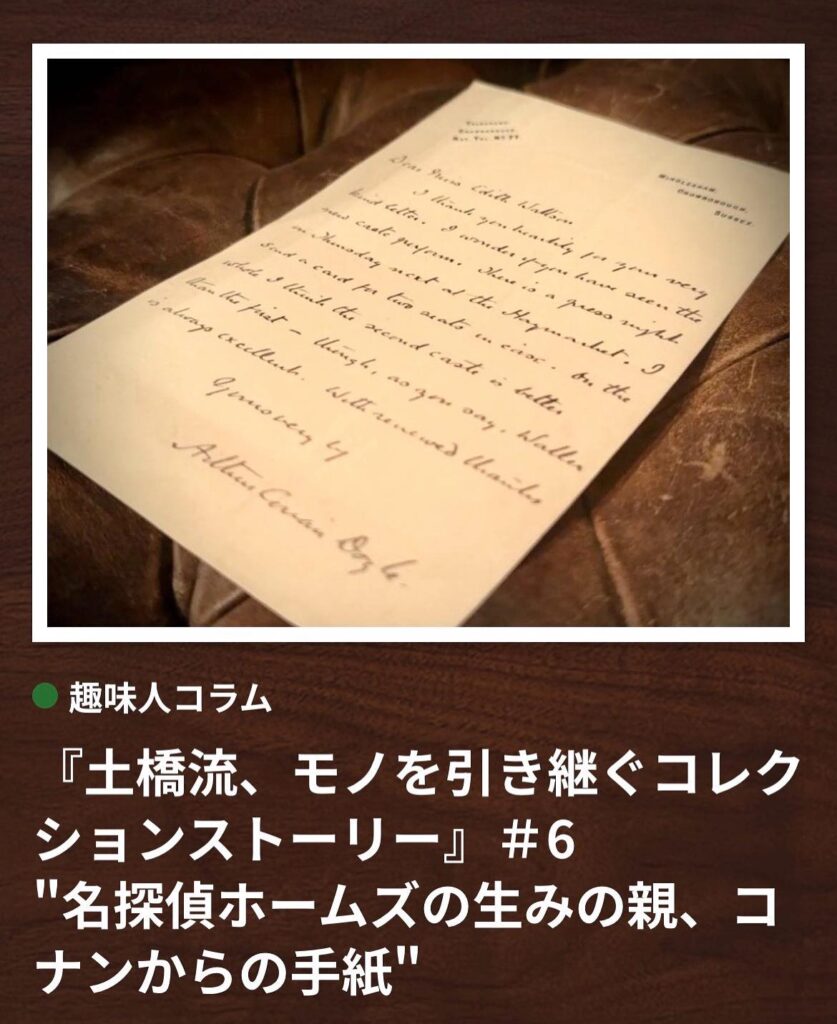 TELEGRAMS.
CROWBOROUGH.
WINDLESHAM,
CROWBOROUGH,
SUSSEX.
Dear Miss Edith Watson
I thank you heartily for your very
kind letter. I wonder if you have seen the
new caste perform. There is a press night
on Thursday next at the Haymarket. I
send a card for two seats in case. On the
whole I think the second caste is better
than the first — though, as you say, Waller
is always excellent. With renewed thanks
Yours very
Arthur Conan Doyle.
趣味人コラム
『土橋流、モノを引き継ぐコレク
ションストーリー』＃6
"名探偵ホームズの生みの親、コ
ナンからの手紙"